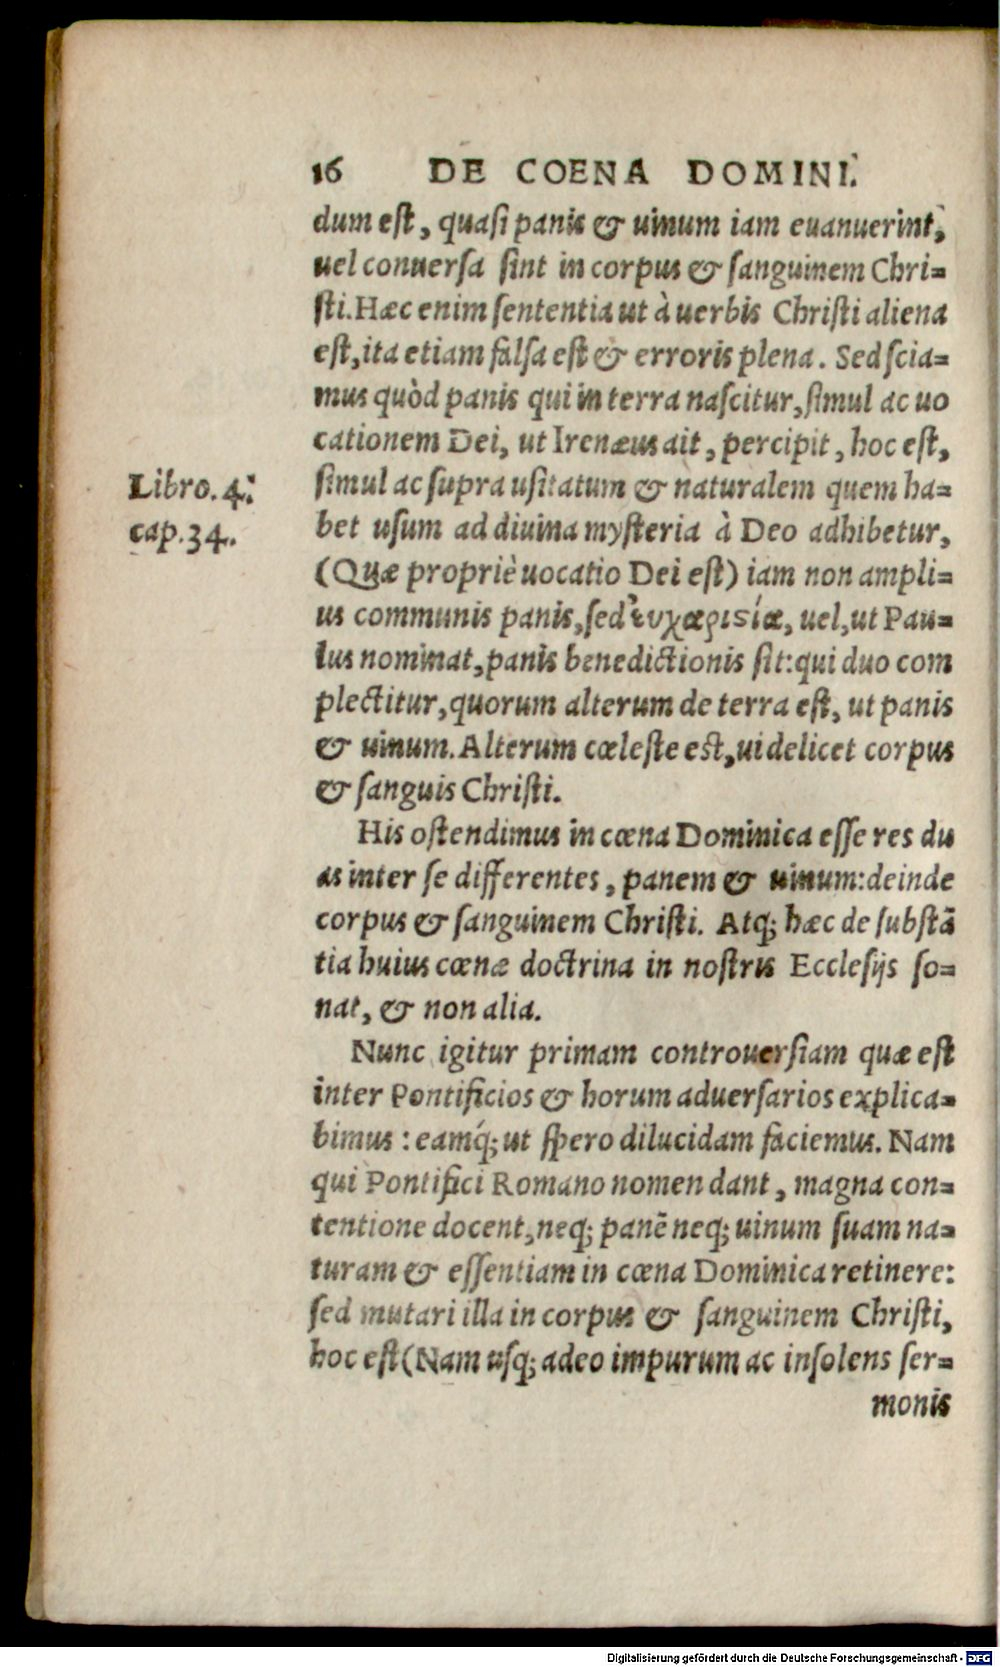 16 DE COENA DOMINI.
dum est, quasi panis & uinum iam euanuerint,
uel conuersa sint in corpus & sanguinem Chri=
sti. Hæc enim sententia ut à uerbis Christi aliena
est, ita etiam falsa est & erroris plena. Sed scia=
mus quòd panis qui in terra nascitur, simul ac uo
cationem Dei, ut Irenæus ait, percipit, hoc est,
Libro. 4.
simul ac supra usitatum & naturalem quem ha=
cap. 34.
bet usum ad diuina mysteria à Deo adhibetur,
(Quæ propriè uocatio Dei est) iam non ampli=
us communis panis, sed ἐυχαριστία, uel, ut Pau=
lus nominat, panis benedictionis sit: qui duo com
plectitur, quorum alterum de terra est, ut panis
& uinum. Alterum cœleste est, uidelicet corpus
& sanguis Christi.
His ostendimus in cœna Dominica esse res du
as inter se differentes, panem & uinum: deinde
corpus & sanguinem Christi. Atq; hæc de substã
tia huius cœnæ doctrina in nostris Ecclesijs so=
nat, & non alia.
Nunc igitur primam controuersiam quæ est
inter Pontificios & horum aduersarios explica=
bimus: eamq́; ut spero dilucidam faciemus. Nam
qui Pontifici Romano nomen dant, magna con=
tentione docent, neq; panẽ neq; uinum suam na=
turam & essentiam in cœna Dominica retinere:
sed mutari illa in corpus & sanguinem Christi,
hoc est (Nam usq; adeo impurum ac insolens ser=
monis
Digitalisierung gefördert durch die Deutsche Forschungsgemeinschaft - DFG